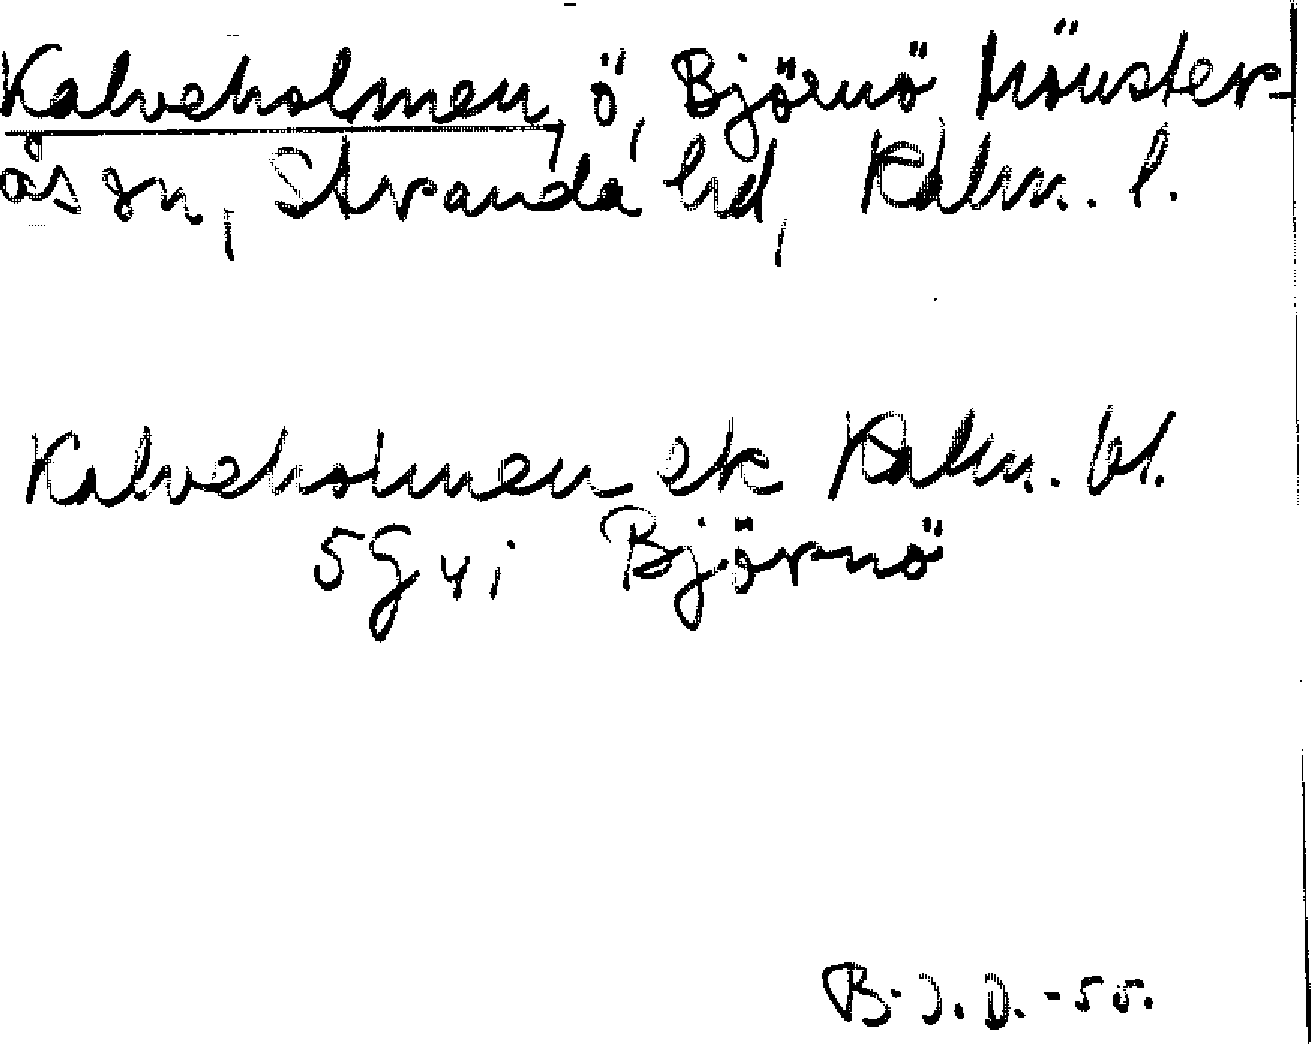 Kalveholmen, ö, Björnö Mönster-
ås sn, Stranda hd, Kalm. l.
Kalveholmen ek Kalm. bl.
5g y i Björnö
B.J.D. -55.